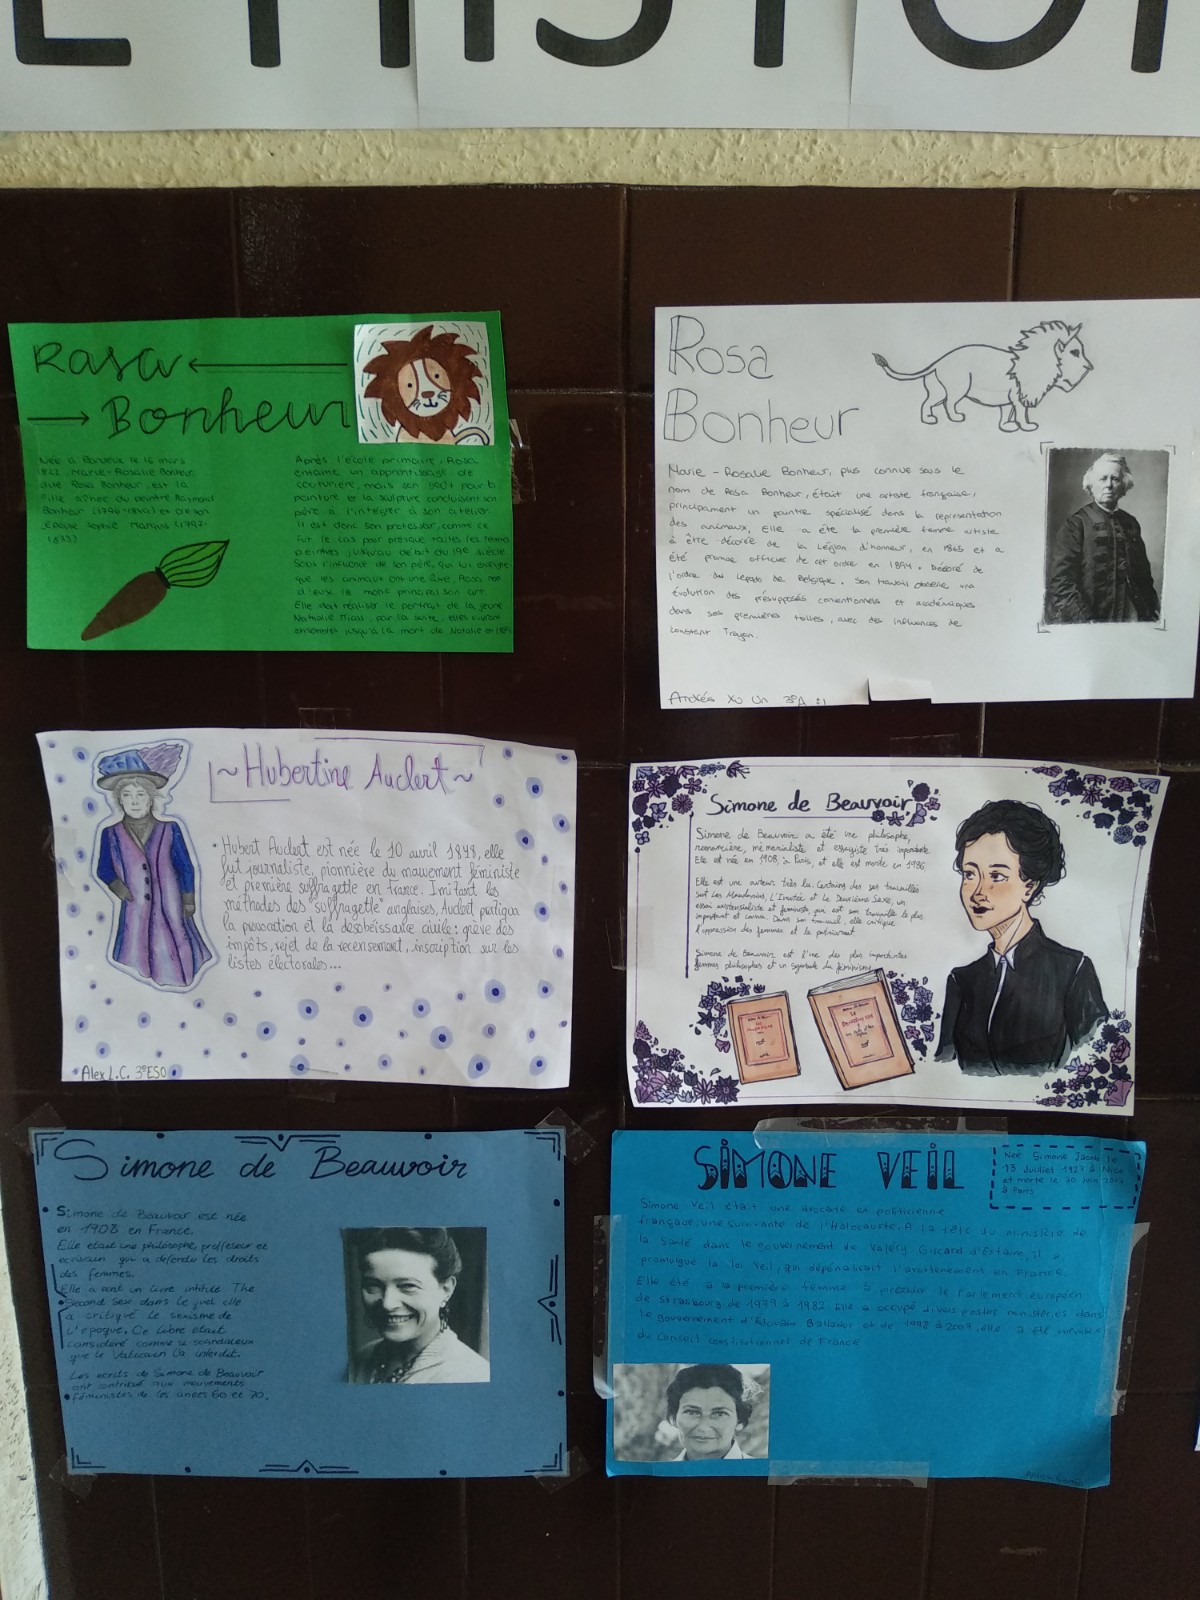 E HISTOI
Rosa
Bonheur
Née à Bordeux le 16 mars
1822, Marie-Rosalie Bonheur
dite Rosa Bonheur, est la
fille aînée du peintre Raymond
Bonheur (1796-1849) et de son
épouse Sophie Marquis (1797-
1833)
Après l'école primaire, Rosa
entame un apprentissage de
couturière, mais son goût pour la
peinture et la sculpture conduisent son
père à l'intégrer à son atelier.
Il est donc son professeur, comme ce
fut le cas pour presque toutes les femmes
peintres jusqu'au début du 19e siècle.
Sous l'influence de son père, qui lui enseigne
que les animaux ont une âme, Rosa
d'eux le motif principal son art.
Elle doit réaliser le portrait de la jeune
Nathalie Micas, par la suite, elles vivront
ensembles jusqu'à la mort de Natalie en
Rosa
Bonheur
Marie-Rosalie Bonheur, plus connue sous le
nom de Rosa Bonheur, était une artiste française,
principament un peintre spécialisé dans la représentation
des animaux, Elle a éte la première femme artiste
à être décorée de la Légion d'honneur, en 1865 et a
été promue officier de cet ordre en 1894. Décoré de
l'ordre du Leopold de Belgique. Son travail observe una
évolution des présupposés conventionnels et académiques
dans ses premières toiles, avec des influences de
Constant Troyon.
Andrés Xu Un 3ºA :)
~Hubertine Auclert~
Hubert Auclert est née le 10 avril 1848, elle
fut journaliste, pionnière du mouvement féministe
et première suffragette en France. Imitant les
méthodes des "suffragette" anglaises, Auclert pratiqua
la provocation et la désobéissance civile: grève des
impôts, rejet de la recensement, inscription sur les
listes électorales...
Alex L.C. 3ºESO
Simone de Beauvoir
Simone de Beauvoir a été une philosophe,
romancière, mémorialiste et essayiste très importante.
Elle est née en 1908, à Paris, et elle est morte en 1986.
Elle est une auteur très lu. Certains des ses travailles
sont Les Mandarins, L'Invitée et Le Deuxième Sexe, un
essai existensialiste et féministe, que est son travaille le plus
important et connu. Dans son travail, elle critique
l'oppression des femmes et le patriarcat
Simone de Beauvoir est l'une des plus importantes
femmes philosophes et un symbole du féminisme
Simone de Beauvoir
Simone de Beauvoir est née
en 1908 en France.
Elle était une philosophe, proffeseur et
écrivain qui a défendu les droits
des femmes.
Elle a écrit un livre intitulé The
Second Sex dans le quel elle
a critiqué le sexisme de
l'époque. Ce libre était
considéré comme si scandaleux
que le Vaticain la interdit.
Les ecrits de Simone de Beauvoir
ont contribué aux mouvements
féministes de les anées 60 et 70.
SIMONE VEIL
Née Simone Jacob le
13 Juillet 1927 à Nice
et morte le 30 juin 2017
à Paris
Simone Veil était une avocate en politicienne
française, une survivante de l'Holocauste. A la tête du ministère de
la Santé dans le gouvernement de Valéry Giscard d'Estaing, il a
promulgué la loi Veil, qui dépénalisait l'avortement en France.
Elle été a la première femme à présider le Parlement européen
de Strasbourg de 1979 à 1982. Elle a occupé divers postes ministériels dans
le gouvernement d'Édouard Balladur et de 1998 à 2007, elle a été membre
du Conseil constitutionnel de France